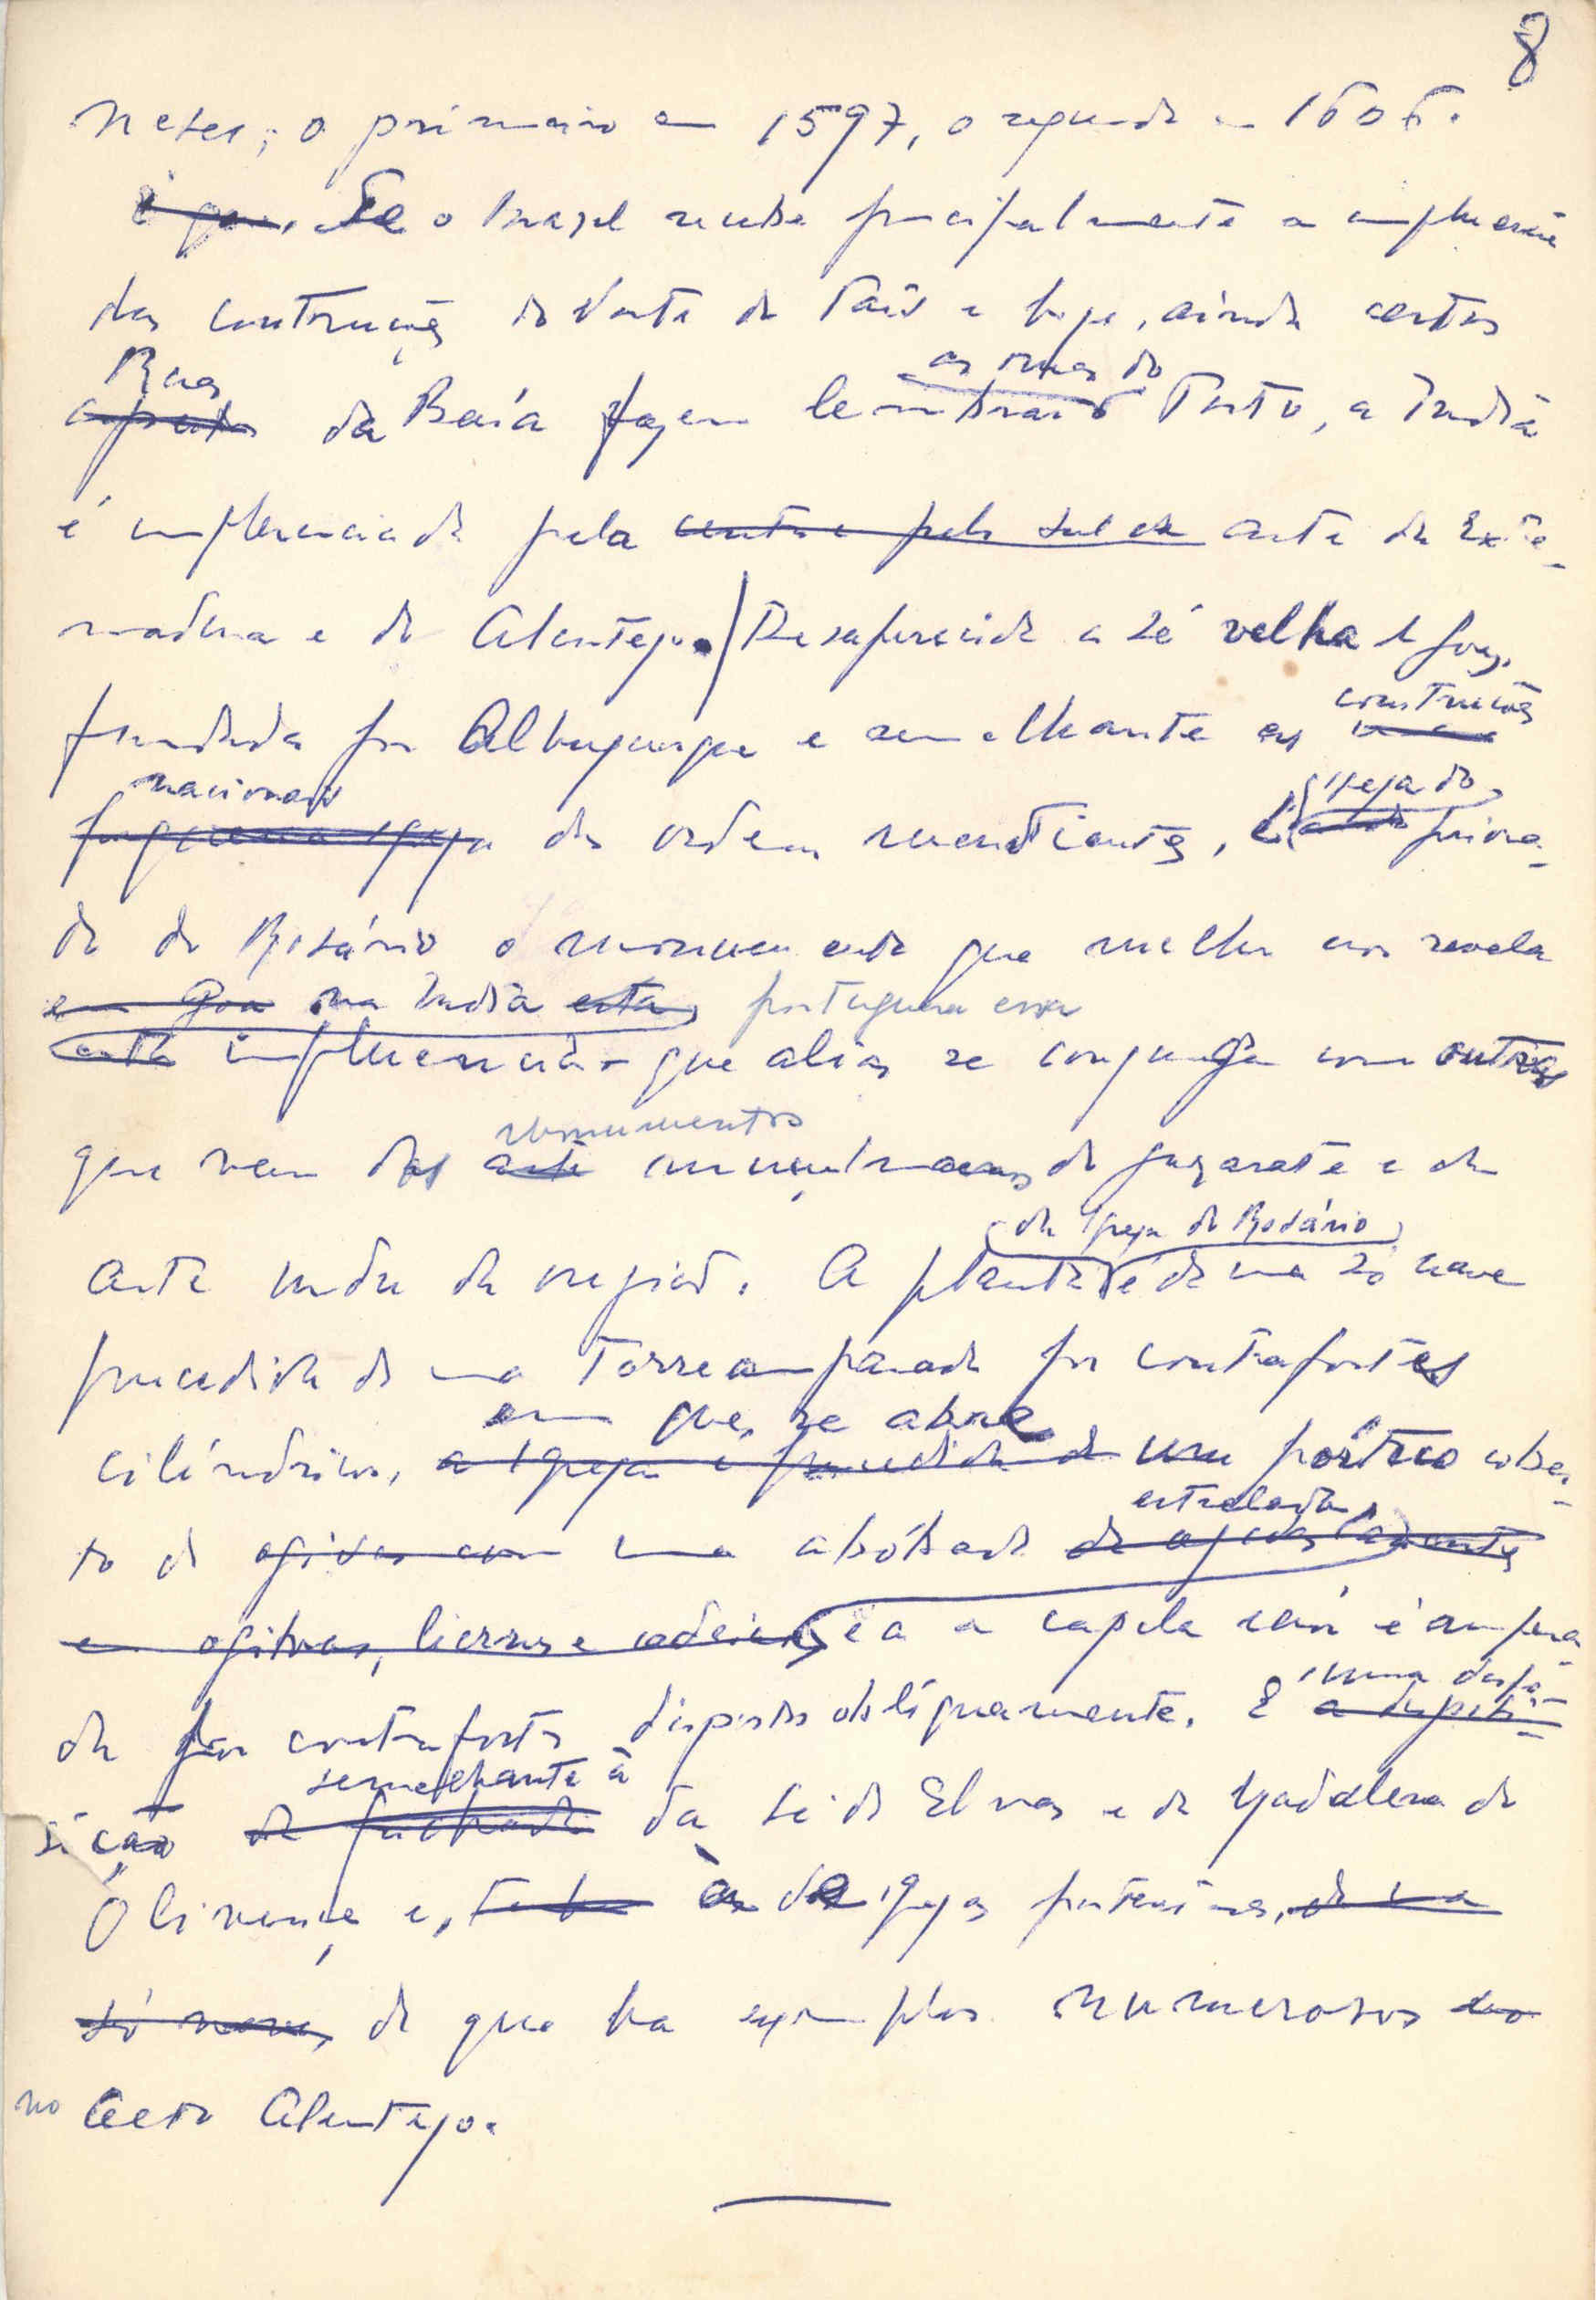 8
neses; o primeiro em 1597, o segundo em 1606.
Se o Brasil recebe principalmente a influencia
das construções do Norte do País e hoje, ainda certas
Ruas
da Baía fazem lembrar as ruas do Porto, a India
é influenciada pela centro e pelo sul da arte da Extre-
madura e do Alentejo. Desaparecida a Sé velha de Goa,
fundada por Albuquerque e semelhante as construções
nacionais
das ordens mendicantes, é a igreja do priora-
do do Rosário o monumento que melhor nos revela
em Goa na India esta portuguesa essa
esta influencia - que alias se conjuga com outras
que vem dos arte monumentos muçulmanos do Guzarate e da
arte indu da região. A planta da Igreja do Rosário é de uma só nave
precedida de uma Torre amparada por contrafortes
em que se abre
cilíndricos, a Igreja é precedida de um pórtico cober-
to de ogivas com uma abóbada estrelada
em ogivas, liernes e cadeias e a a capela mór é ampara-
da por contrafortes dispostos obliquamente. É numa dispo-
sição semelhante à da Sé de Elvas e da Madalena de
Olivença e, às das igrejas de uma
só nave, de que ha exemplos numerosos no
no Alentejo.